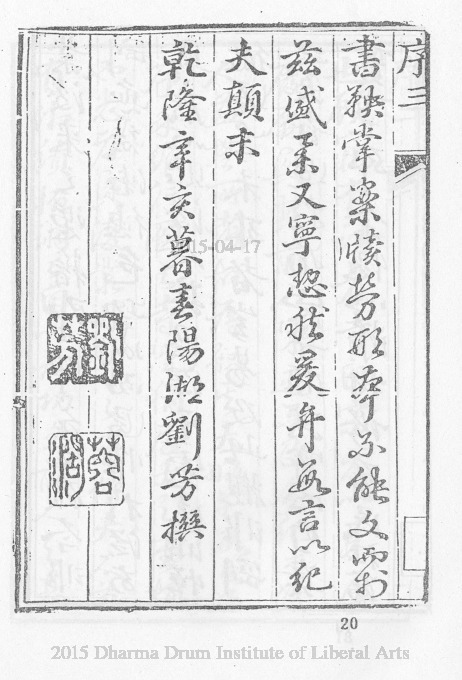 序三
書鞅掌案牘勞形不能文而
茲盛舉又寧恝然爰弁數言以紀
夫顛末
乾隆辛亥暮春陽湖劉芳撰
劉芳
15-04-17
20
2015 Dharma Drum Institute of Liberal Arts